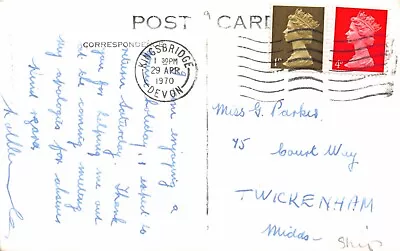 POST CARD
CORRESPONDENCE
KINGSBRIDGE
1 30PM
29 APR
1970
DEVON
1D
4D
am enjoying a
holiday, & expect to
return Saturday. Thank
you for helping me out
at the coming meeting
my apologies for absence
Kind regards
Miss G. Parker
45
Court Way
TWICKENHAM
Middx-